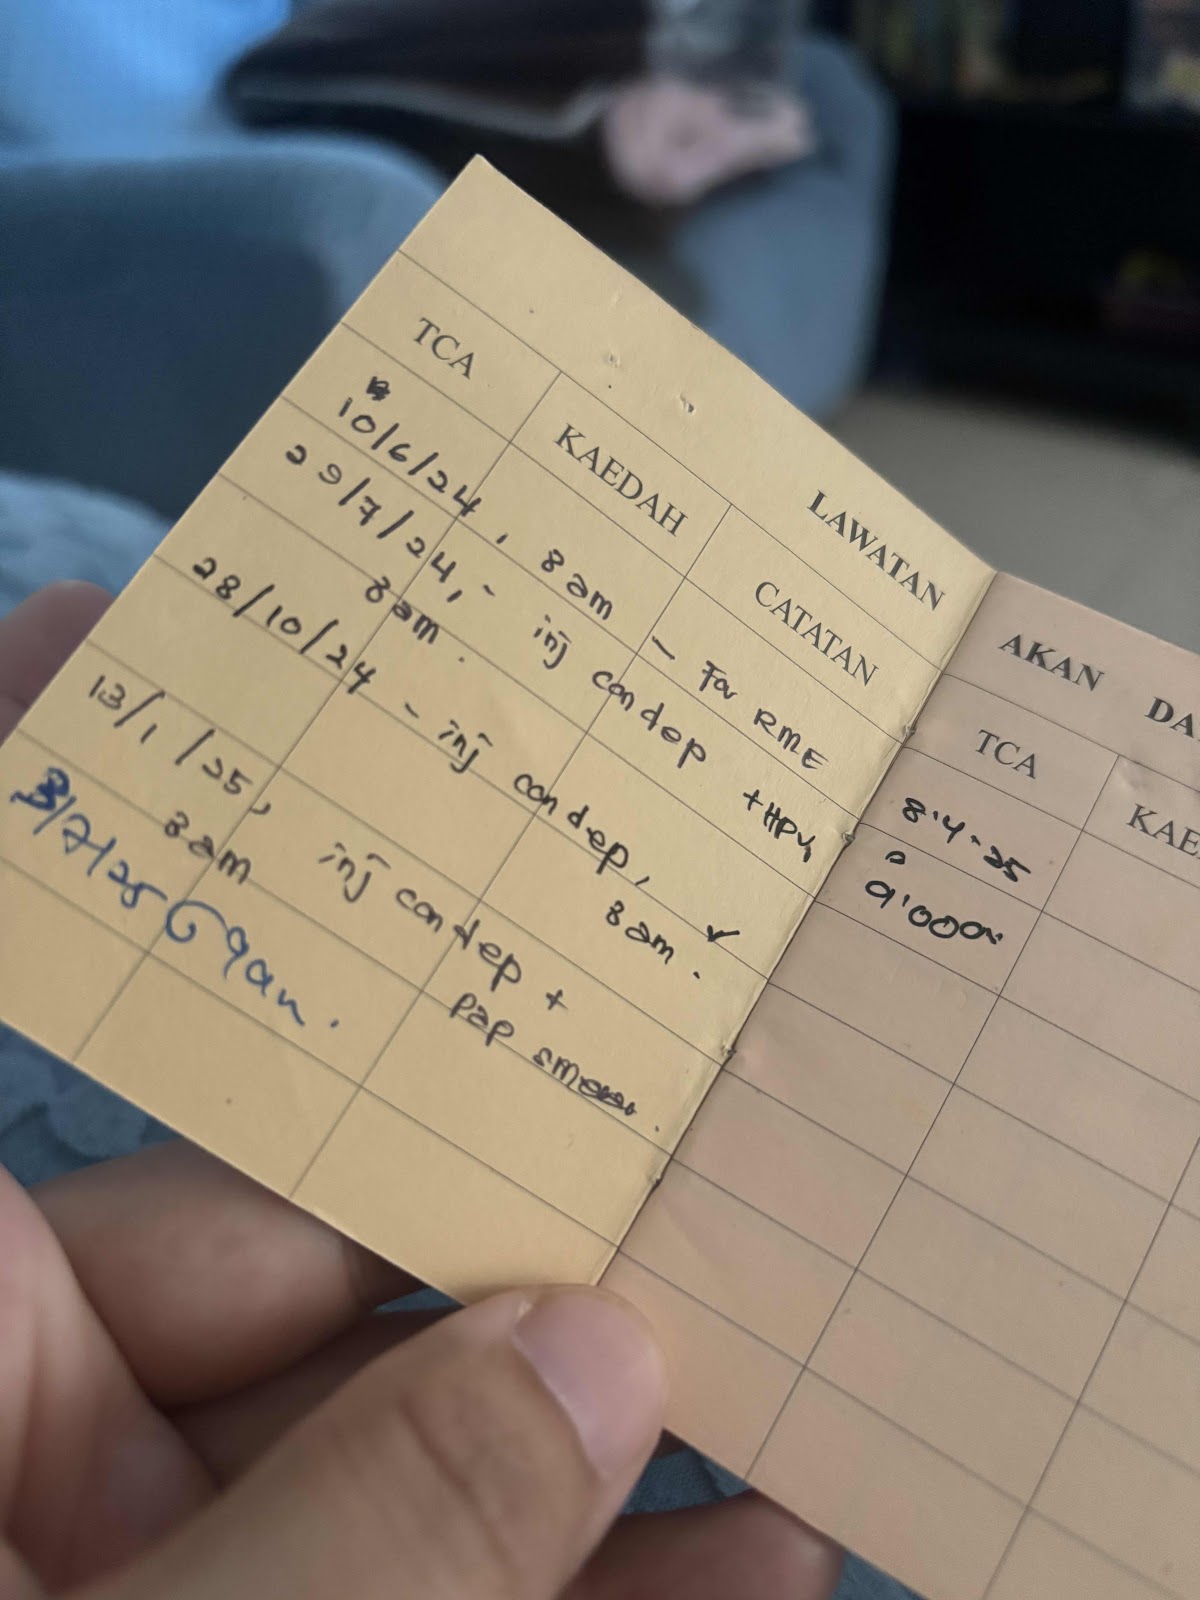 LAWATAN
AKAN DA
TCA KAEDAH CATATAN
10/6/24, 8am - For RME
29/7/24, - inj condep + HPV,
8am.
28/10/24 - inj condep, 8am. ✓
13/1/25, inj condep +
8am pap
@ 9am.
TCA KAE
8.4.25
9.00